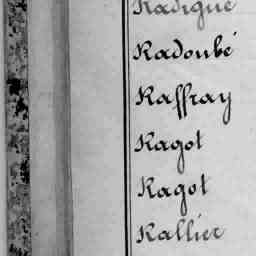 Radigue
Radoubé
Raffray
Ragot
Ragot
Rallier